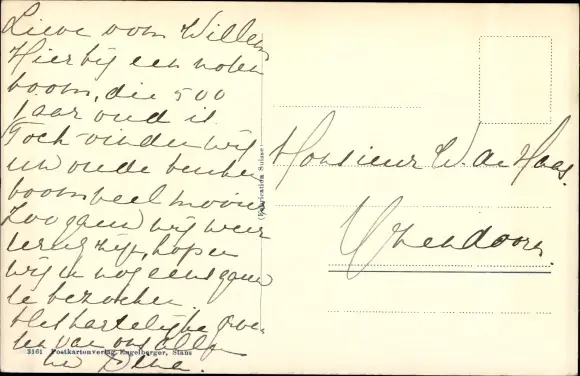 Lieve oom Willem
Hierbij een noten
boom, die 500
jaar oud is.
Toch vinden wij
uw oude beuken
boom veel mooier
Zoo gauw wij weer
terug zijn, hopen
wij U nog eens gauw
te bezoeken.
Met hartelijke groe-
ten van ons allen
uw
Monsieur W. de Haas.
(Fabrication Suisse)
3161 Postkartenverlag Engelberger, Stans